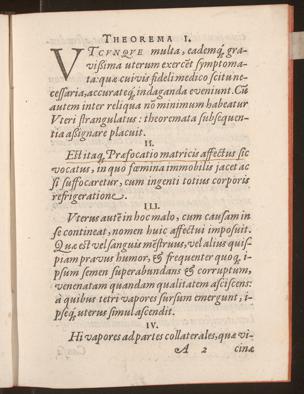 THEOREMA I.
VTCVNQVE multa, eademq́, gra-
vißima uterum exercēt symptoma-
ta: quæ cuivis fideli medico scitu ne-
cessaria, accurateq́, indaganda eveniunt. Cū
autem inter reliqua nō minimum habeatur
Vteri strangulatus: theoremata subsequen-
tia aßignare placuit.
II.
Est itaq́, Præfocatio matricis affectus sic
vocatus, in quo fœmina immobilis jacet ac
si suffocaretur, cum ingenti totius corporis
refrigeratione.
III.
Vterus autē in hoc malo, cum causam in
se contineat, nomen huic affectui imposuit.
Quæ est vel sanguis mēstruus, vel alius quis-
piam pravus humor, & frequenter quoq́, i-
psum semen superabundans & corruptum,
venenatam quandam qualitatem asciscens:
à quibus tetri vapores sursum emergunt, i-
pseq́, uterus simul ascendit.
IV.
Hi vapores ad partes collaterales, quæ vi-
A 2 cinæ